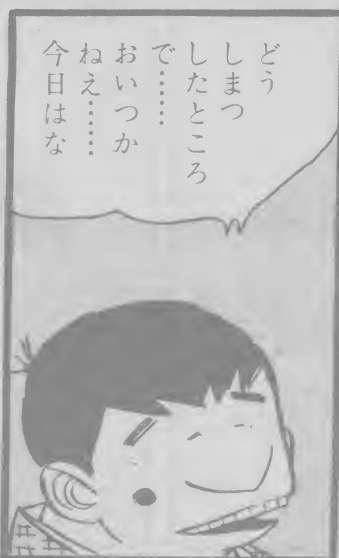 どう
しまつ
したところ
で………
おいつか
ねえ……
今日はな